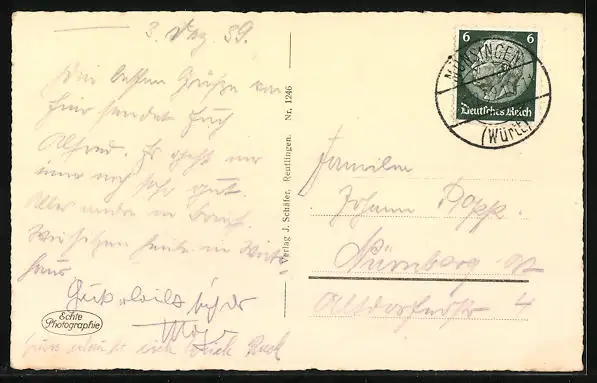 3. Dez. 39.
Die besten Grüße von
hier sendet Euch
Alfred. Es geht mir
immer noch sehr gut.
Alles andere in Brief.
Wir sitzen heute in Wirts-
haus
Echte
Photographie
Verlag J. Schäfer, Reutlingen. Nr. 1246
6 6
Deutsches Reich
MÜNSINGEN
(WÜRTT)
Familie
Johann Popp.
Nürnberg-O
Altdorferstr 4